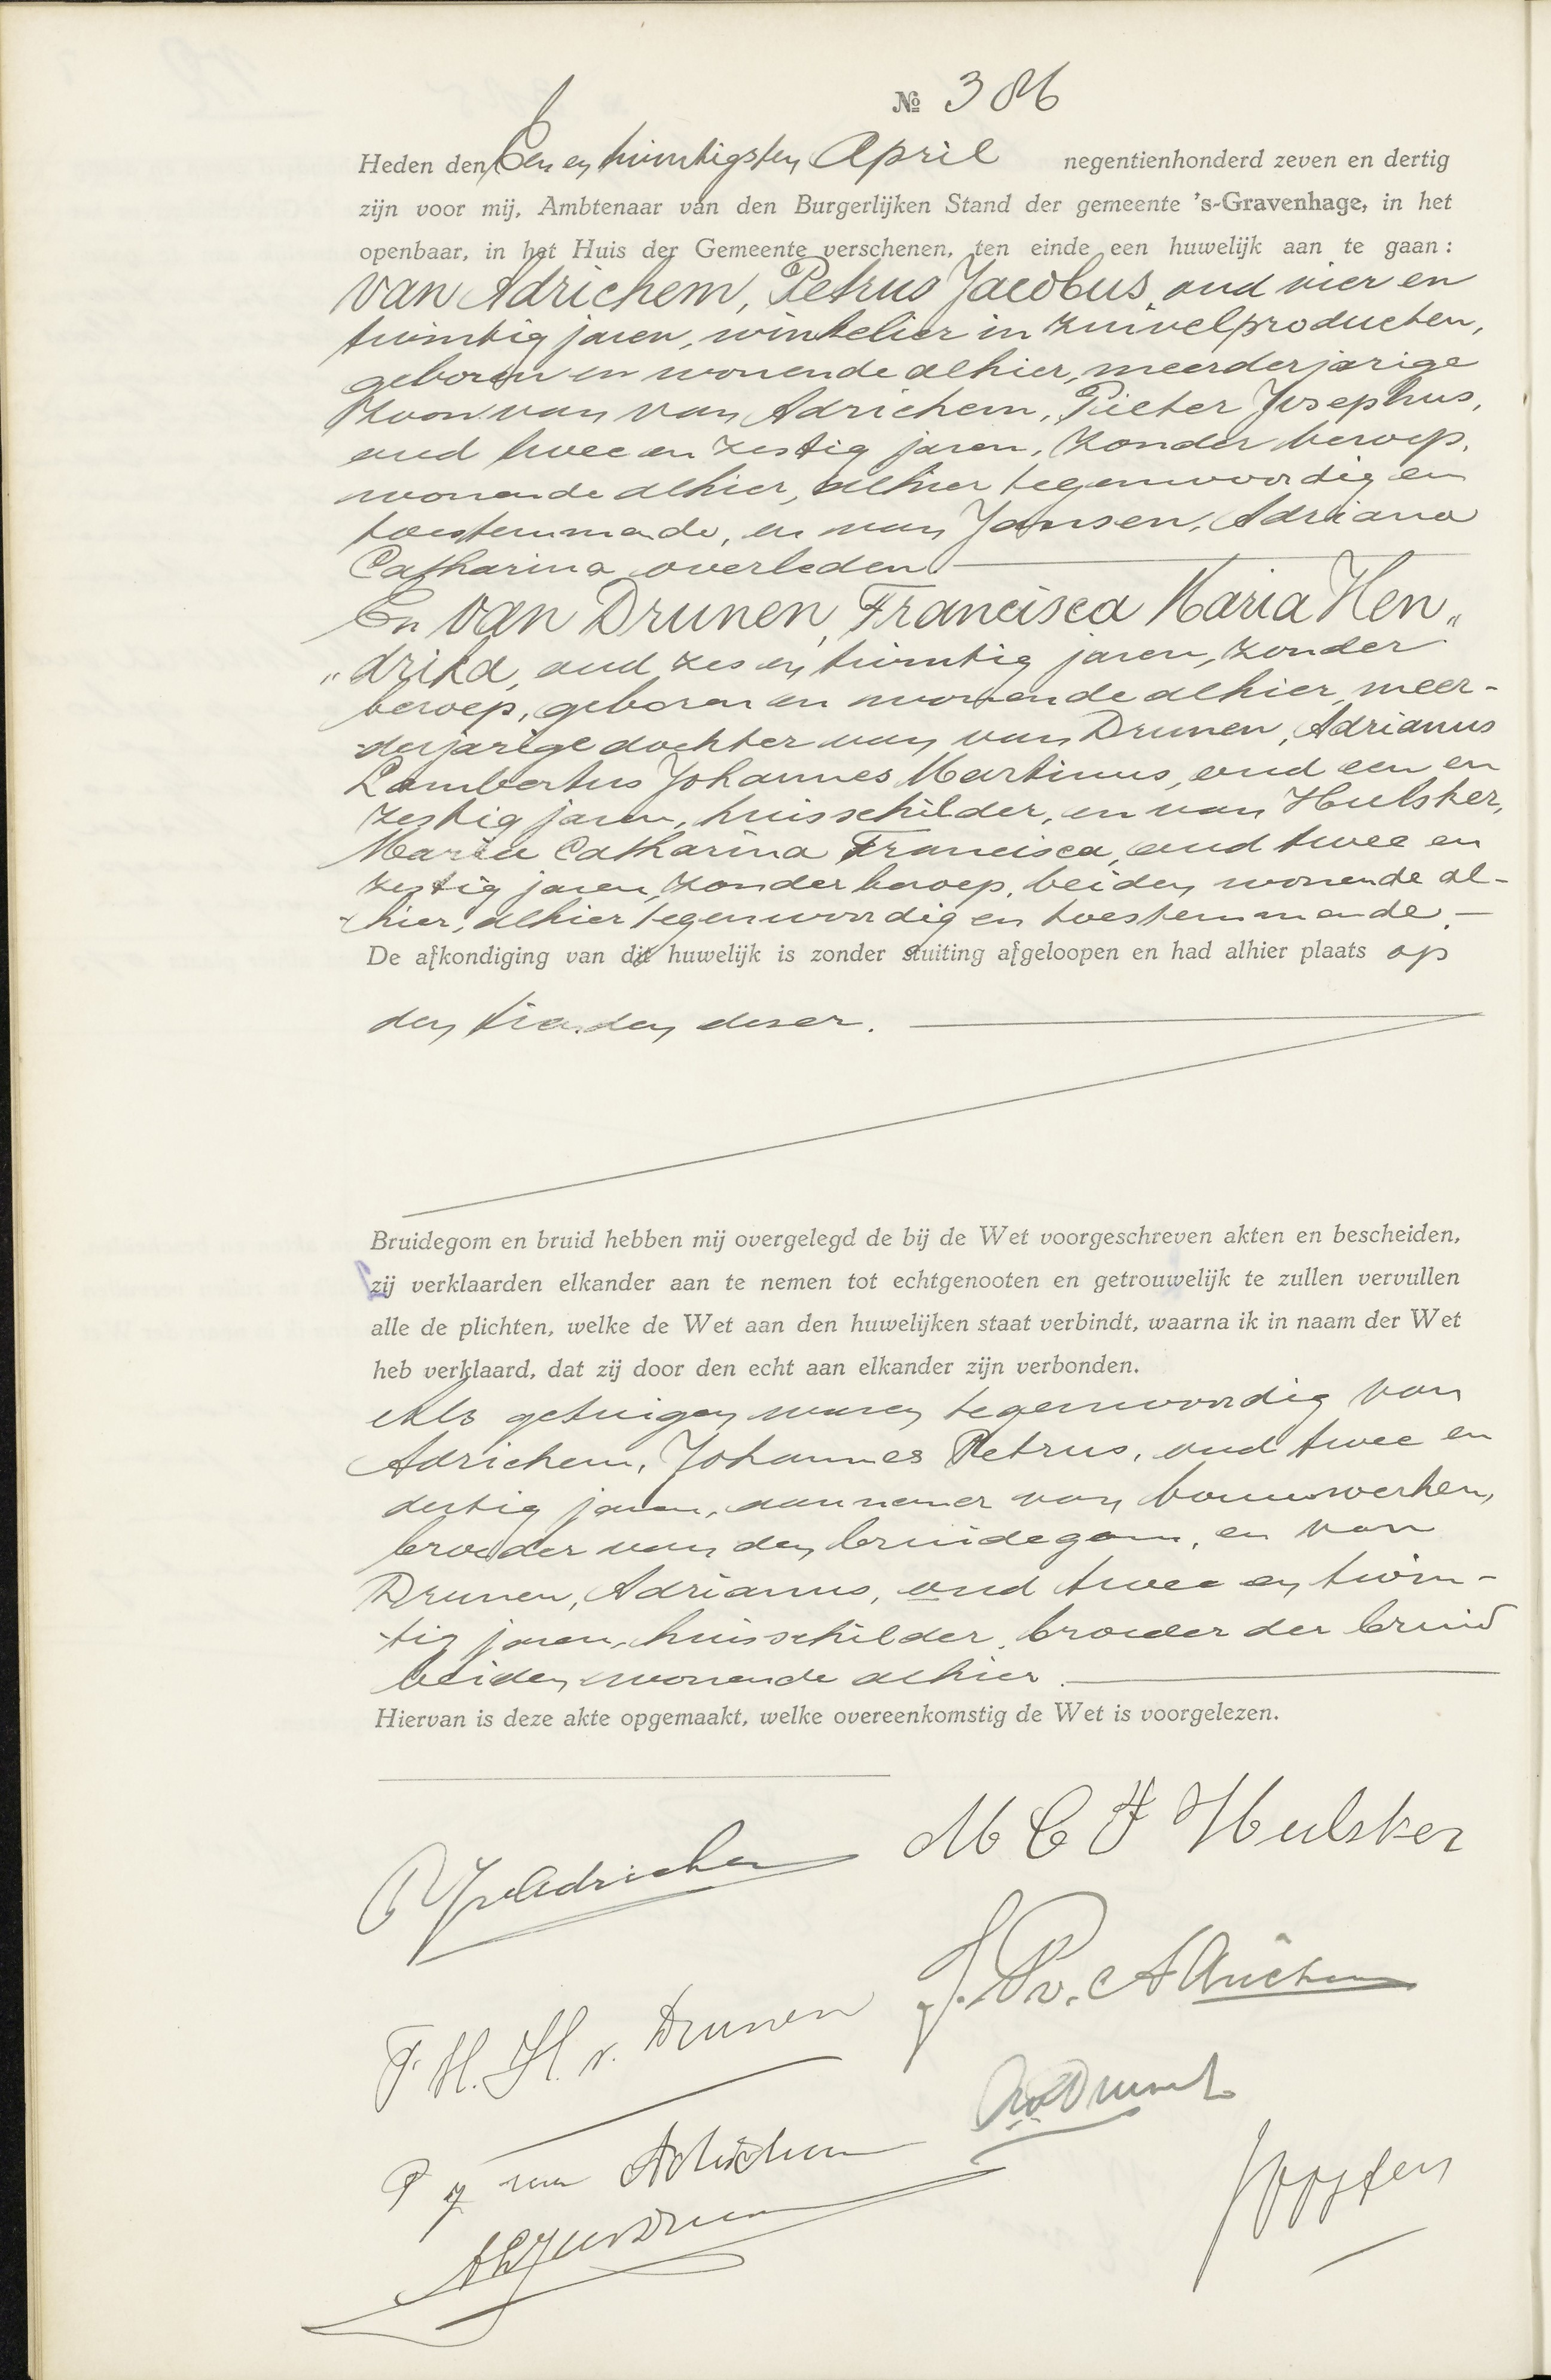 № 386
Heden den Een en twintigsten April negentienhonderd zeven en dertig
zijn voor mij, Ambtenaar van den Burgerlijken Stand der gemeente 's-Gravenhage, in het
openbaar, in het Huis der Gemeente verschenen, ten einde een huwelijk aan te gaan:
van Adrichem, Petrus Jacobus, oud vier en
twintig jaren, winkelier in zuivelproducten,
geboren en wonende alhier, meerderjarige
zoon van van Adrichem, Pieter Josephus,
oud twee en zestig jaren, zonder beroep,
wonende alhier, alhier tegenwoordig en
toestemmende, en van Jansen, Adriana
Catharina overleden
En van Drunen, Francisca Maria Hen„
„drika, oud zes en twintig jaren, zonder
beroep, geboren en wonende alhier, meer-
-derjarige dochter van van Drunen, Adrianus
Lambertus Johannes Martinus, oud een en
zestig jaren, huisschilder, en van Hulsker,
Maria Catharina Francisca, oud twee en
zestig jaren, zonder beroep, beiden wonende al-
-hier, alhier tegenwoordig en toestemmende.
De afkondiging van dit huwelijk is zonder stuiting afgeloopen en had alhier plaats op
den tienden dezer.
Bruidegom en bruid hebben mij overgelegd de bij de Wet voorgeschreven akten en bescheiden,
zij verklaarden elkander aan te nemen tot echtgenooten en getrouwelijk te zullen vervullen
alle de plichten, welke de Wet aan den huwelijken staat verbindt, waarna ik in naam der Wet
heb verklaard, dat zij door den echt aan elkander zijn verbonden.
Als getuigen waren tegenwoordig van
Adrichem, Johannes Petrus, oud twee en
dertig jaren, aannemer van bouwwerken,
broeder van den bruidegom, en van
Drunen, Adrianus, oud twee en twin-
-tig jaren, huisschilder, broeder der bruid
beiden wonende alhier.
Hiervan is deze akte opgemaakt, welke overeenkomstig de Wet is voorgelezen.
M C F Hulsker
P J v Adrichem
J. P v. Adrichem
F. M. H. v. Drunen
A v Drunen
P J van Adrichem